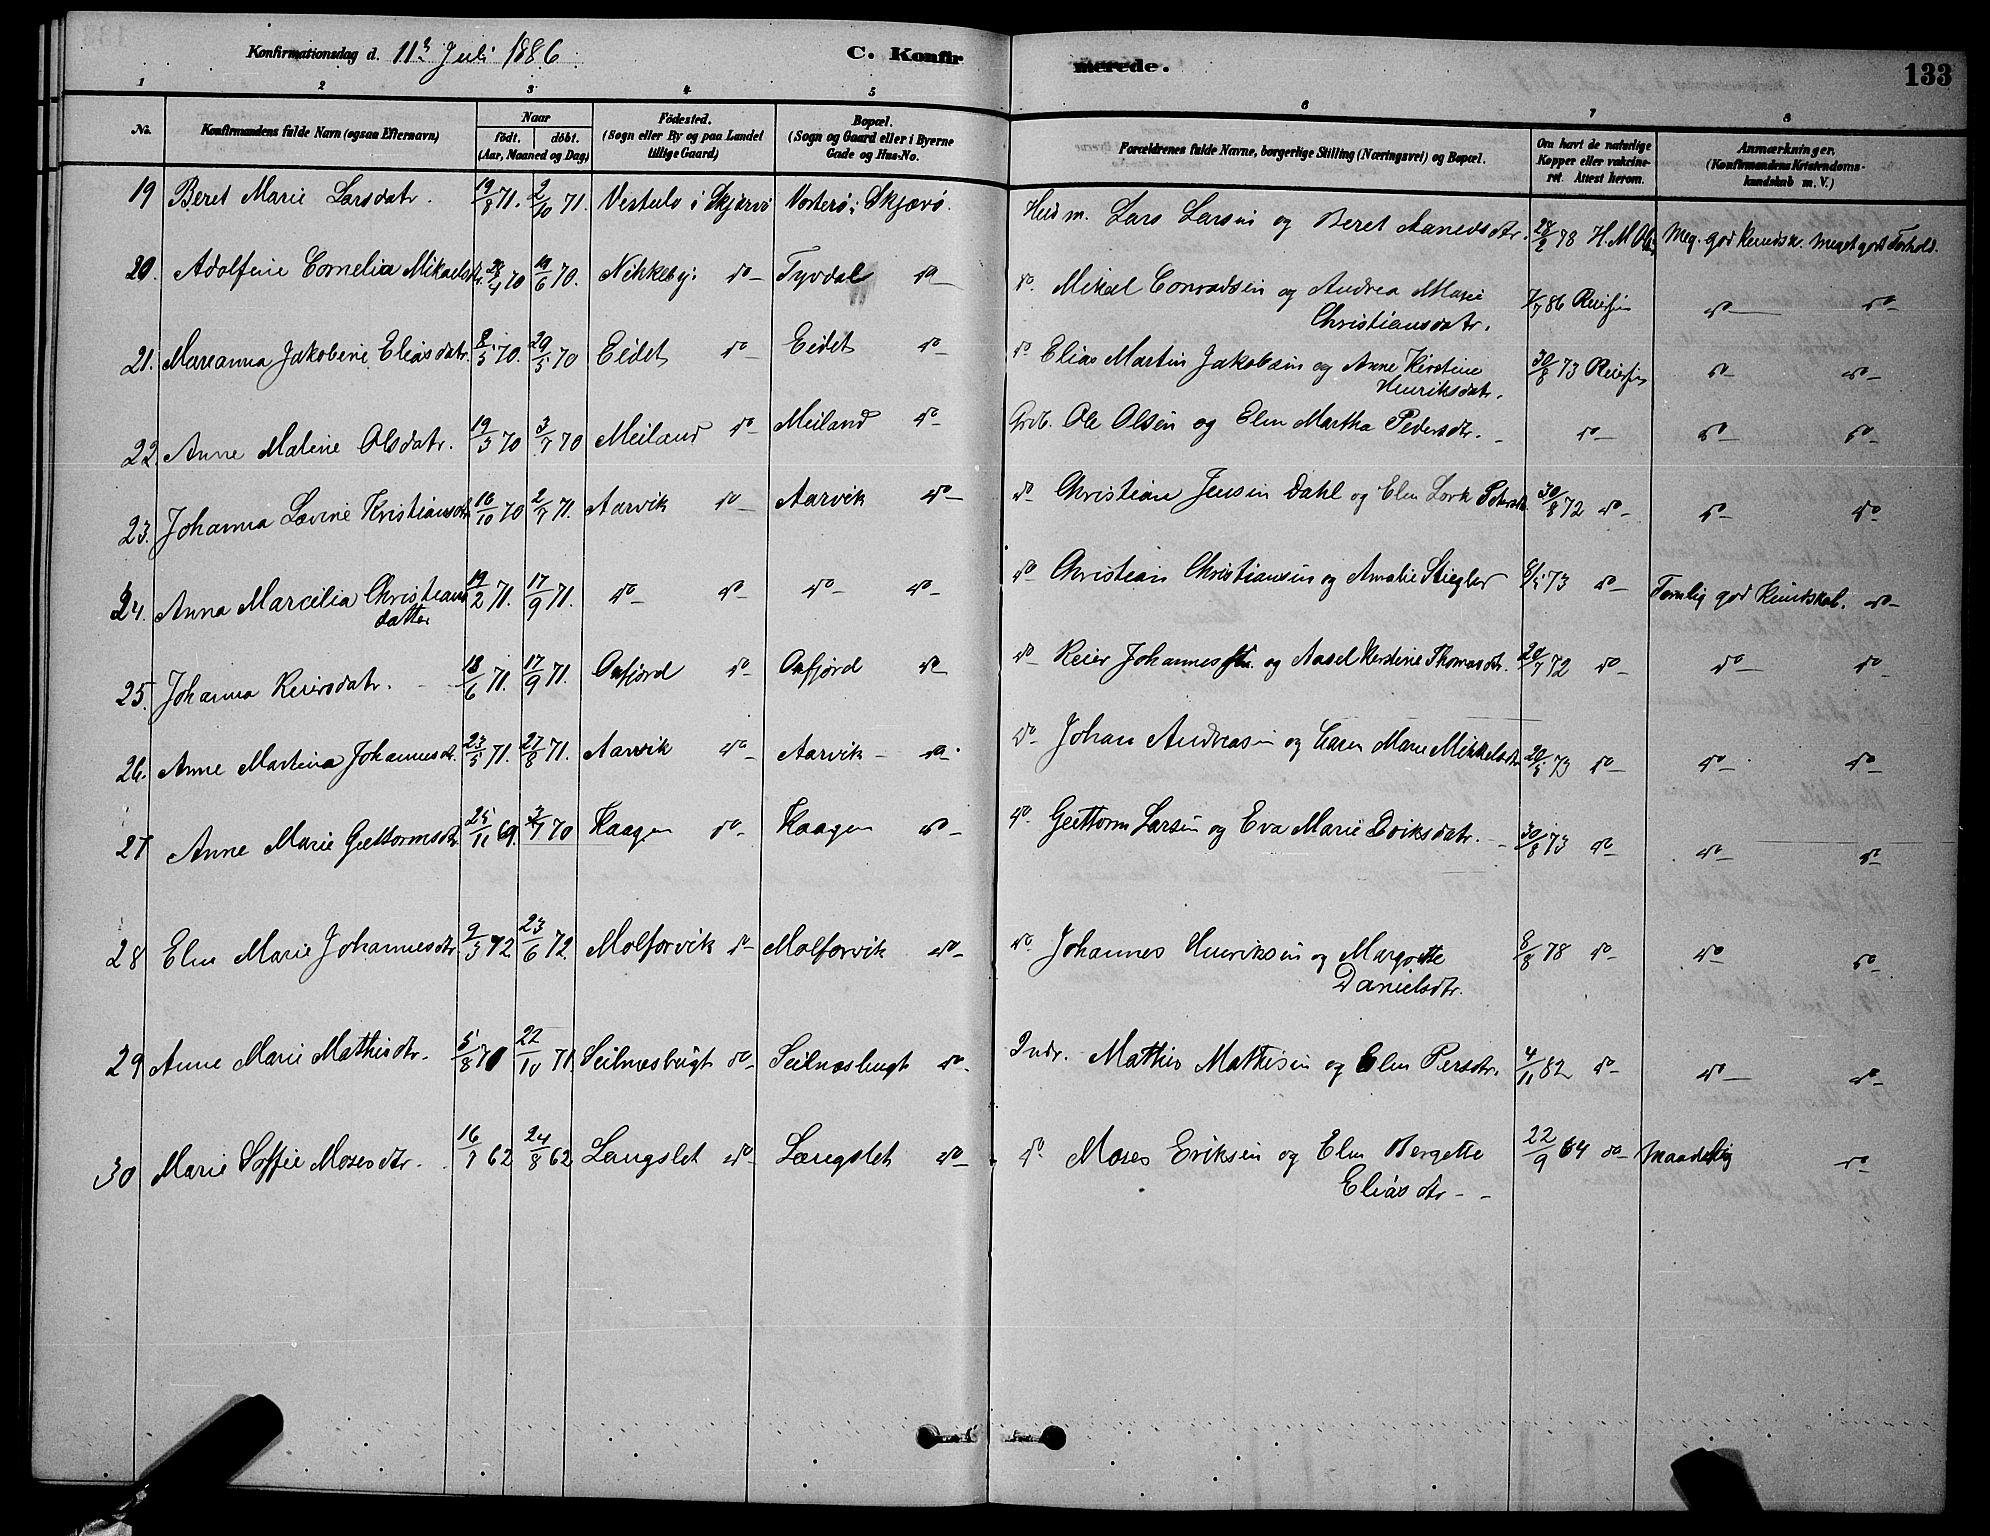 Konfirmationsdag d. 11te Juli 1886. C. Konfirmerede. 133
1 2 3 4 5 6 7 8
No. Konfirmandens fulde Navn (ogsaa Efternavn) Naar födt. döbt. (Aar, Maaned og Dag) Födested. (Sogn eller By og paa Landet tillige Gaard) Bopæl. (Sogn og Gaard eller i Byerne Gade og Hus-No. Forældrenes fulde Navne, borgerlige Stilling (Næringsvei) og Bopæl. Om havt de naturlige Kopper eller vaccineret. Attest herom. Anmærkninger. (Konfirmandens Kristendomskundskab m. V.)
19 Beret Marie Larsdatr. 19/8 71. 2/10 71. i Skjærvö i Skjærvö. Husm. Lars Larsen og Beret 28/2 78 Meg. god Kundsk. Meget godt Forhold.
20. Adolfine Cornelia Mikaelsdtr. 28/4 70 19/6 70. Nikkeby do Tyvdal do do. Mikael Conradsen og Andrea Marie
Christiansdatr. 7/7 86 do do
21. Mareanna Jakobine Eliasdatr. 8/5 70. 29/5 70 Eidet do Eidet do do Elias Martin Jakobsen og Anne Kirstine
Henriksdatr. 30/8 73 do do
22. Anne Maline Olsdatr. 19/3 70 3/7 70 Meiland do Meiland do Grdb. Ole Olsen og Elen Martha Pedersdtr. do do do
23. Johanna Lovine Kristiansdtr 16/10 70 2/7 71. Aarvik do Aarvik do do Christian Jensen Dahl og Elen 30/8 72 do do do
24. Anna Marcilia Christians
datter 19/2 71. 17/9 71. do do do do do Christian Christiansen og Amalie Stiegler 8/5 73 do Temlig god Kundskab. do
25. Johanna Reiersdatr. 18/6 71. 17/9 71. Oxfjord do Oxfjord do do Reier Johannessen og Aasel Kerstine Thomasdtr. 20/7 72 do do do
26. Anne Martina Johannesdtr. 23/5 71. 27/8 71. Aarvik do Aarvik do. do Johan Andreasen og Caren Marie Mikkelsdtr 20/5 73 do do do
27 Anne Marie Guttormsdtr 25/11 69. 3/7 70 Kaagen do Kaagen do do Guttorm Larsen og Eva Marie Eriksdatr. 30/8 73 do do do
28 Elen Marie Johannesdtr 9/3 72 23/6 72 Molforvik do Molforvik do do. Johannes Henriksen og Margrethe
Danielsdtr. 8/8 78 do do do
29 Anne Marie Mathisdtr. 5/8 71 22/10 71 Seilnæsbugt do Seilnæsbugt do Indr. Mathis Mathisen og Elen Persdtr. 4/11 82 do do do
30 Marie Soffie Mosesdtr. 16/7 62 24/8 62 Langslet do Langslet do do. Moses Eriksen og Elen Bergette
Eliasdtr 22/9 64 do maadelig do